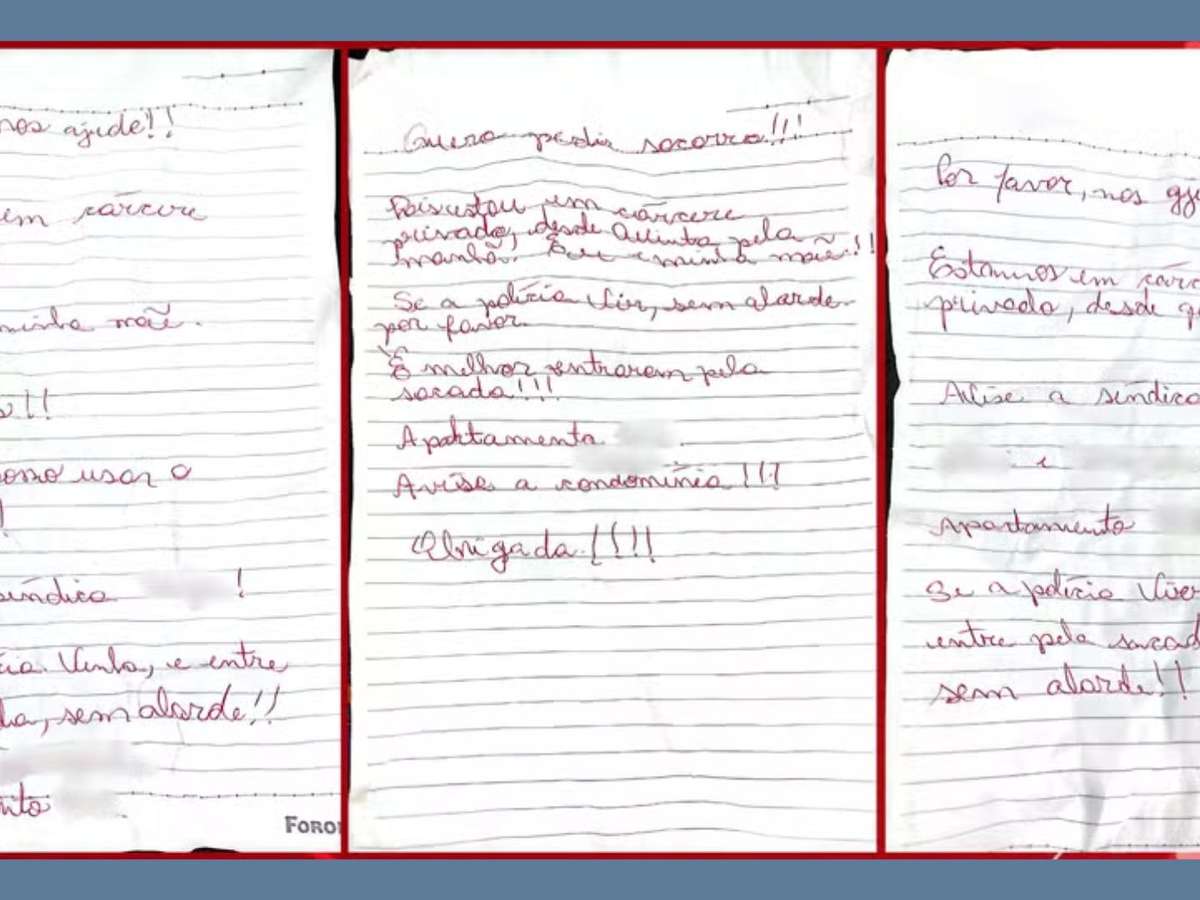 nos ajude!!
em cárcere
minha mãe.
!!
posso usar o
!
síndica !
cia Venha, e entre
da, sem alarde!!
nto
FORO
Quero pedir socorro!!!
Pois estou em cárcere
privado, desde Quinta pela
manhã. Eu e minha mãe!!
Se a polícia vir, sem alarde
por favor.
É melhor entrarem pela
sacada!!!
Apartamento
Avise a condomínia!!!
Obrigada!!!!
Por favor, nos aju
Estamos em cárc
privado, desde qu
Avise a síndica
e
Apartamento
Se a polícia Vier
entre pela sacad
sem alarde!!